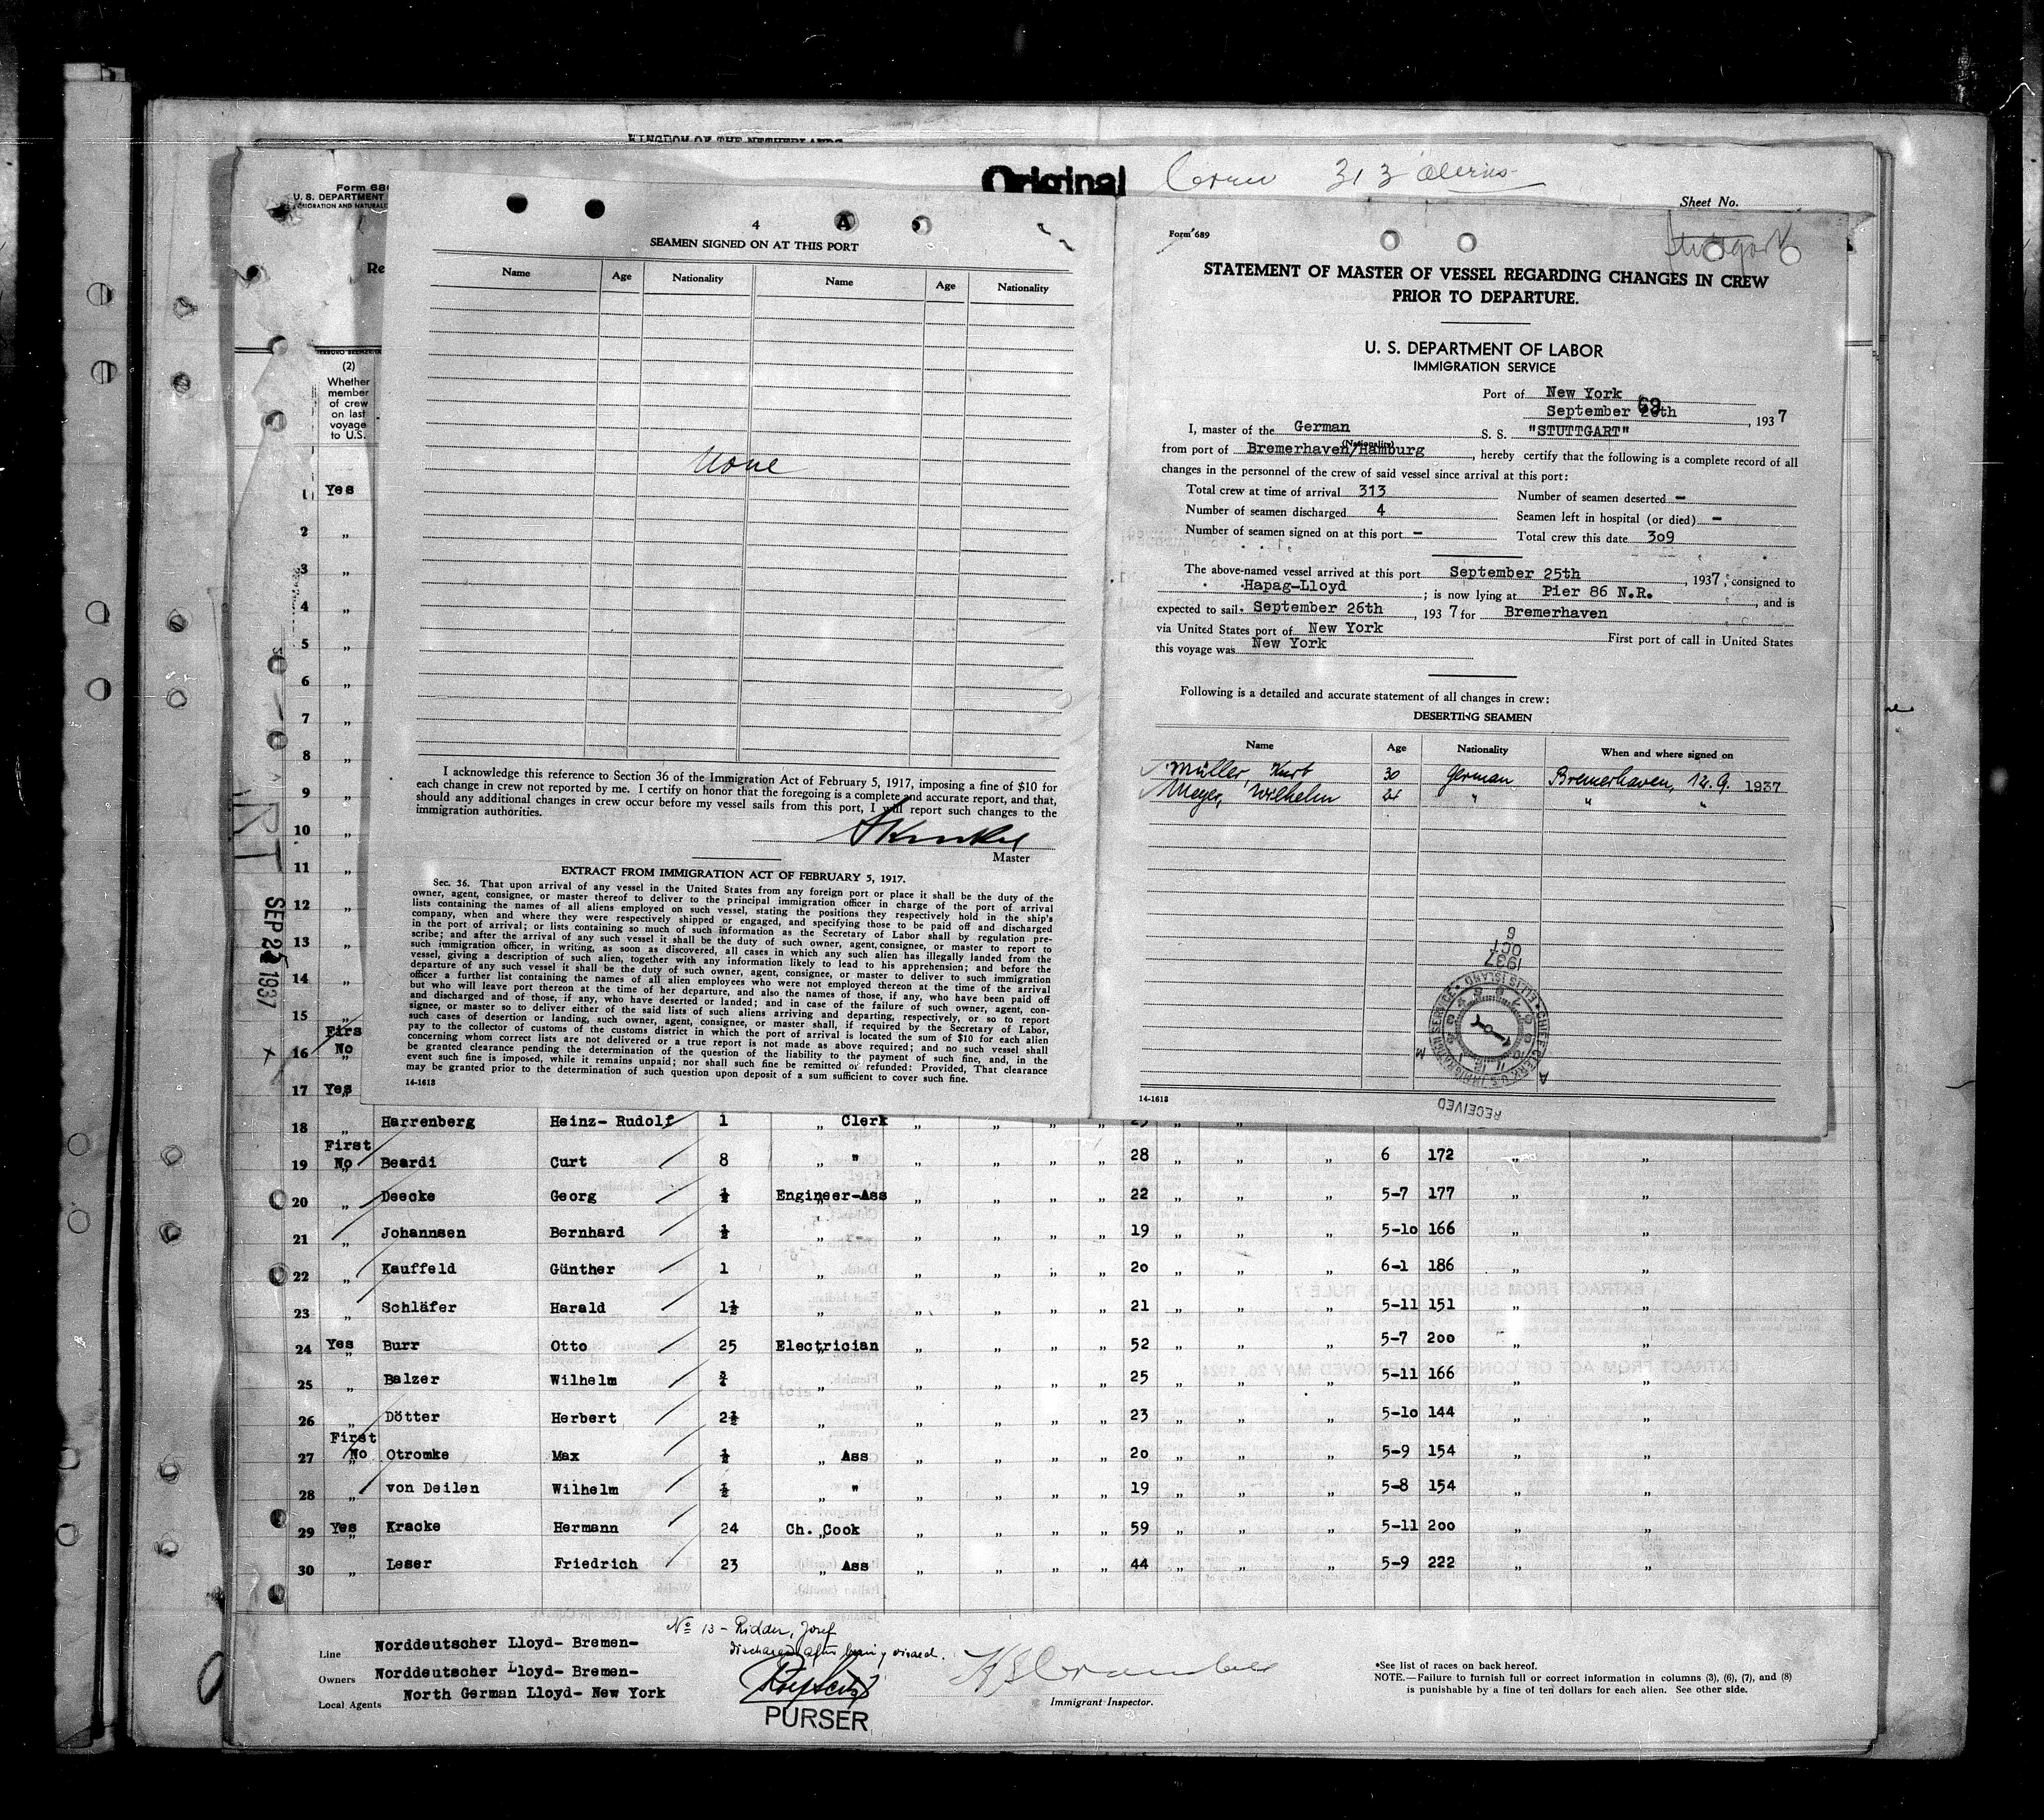 KINGDOM OF THE NETHERLANDS
Original
313 aliens
Sheet No.
Form 680
U. S. DEPARTMENT
IMMIGRATION AND NATURAL
Re
(2)
Whether
member
of crew
on last
voyage
to U.S.
4
A
SEAMEN SIGNED ON AT THIS PORT
Name Age Nationality Name Age Nationality
None
I acknowledge this reference to Section 36 of the Immigration Act of February 5, 1917, imposing a fine of $10 for
each change in crew not reported by me. I certify on honor that the foregoing is a complete and accurate report, and that,
should any additional changes in crew occur before my vessel sails from this port, I will report such changes to the
immigration authorities.
Master
EXTRACT FROM IMMIGRATION ACT OF FEBRUARY 5, 1917.
Sec. 36. That upon arrival of any vessel in the United States from any foreign port or place it shall be the duty of the
owner, agent, consignee, or master thereof to deliver to the principal immigration officer in charge of the port of arrival
lists containing the names of all aliens employed on such vessel, stating the positions they respectively hold in the ship's
company, when and where they were respectively shipped or engaged, and specifying those to be paid off and discharged
in the port of arrival; or lists containing so much of such information as the Secretary of Labor shall by regulation pre-
scribe; and after the arrival of any such vessel it shall be the duty of such owner, agent, consignee, or master to report to
such immigration officer, in writing, as soon as discovered, all cases in which any such alien has illegally landed from the
vessel, giving a description of such alien, together with any information likely to lead to his apprehension; and before the
departure of any such vessel it shall be the duty of such owner, agent, consignee, or master to deliver to such immigration
officer a further list containing the names of all alien employees who were not employed thereon at the time of the arrival
but who will leave port thereon at the time of her departure, and also the names of those, if any, who have been paid off
and discharged and of those, if any, who have deserted or landed; and in case of the failure of such owner, agent, con-
signee, or master so to deliver either of the said lists of such aliens arriving and departing, respectively, or so to report
such cases of desertion or landing, such owner, agent, consignee, or master shall, if required by the Secretary of Labor,
pay to the collector of customs of the customs district in which the port of arrival is located the sum of $10 for each alien
concerning whom correct lists are not delivered or a true report is not made as above required; and no such vessel shall
be granted clearance pending the determination of the question of the liability to the payment of such fine, and, in the
event such fine is imposed, while it remains unpaid; nor shall such fine be remitted or refunded: Provided, That clearance
may be granted prior to the determination of such question upon deposit of a sum sufficient to cover such fine.
14-1618
Form 689
Stuttgart
STATEMENT OF MASTER OF VESSEL REGARDING CHANGES IN CREW
PRIOR TO DEPARTURE.
U. S. DEPARTMENT OF LABOR
IMMIGRATION SERVICE
Port of New York
September 26th, 1937
I, master of the German S. S. "STUTTGART"
(Nationality)
from port of Bremerhaven/Hamburg, hereby certify that the following is a complete record of all
changes in the personnel of the crew of said vessel since arrival at this port:
Total crew at time of arrival 313 Number of seamen deserted -
Number of seamen discharged 4 Seamen left in hospital (or died) -
Number of seamen signed on at this port - Total crew this date 309
The above-named vessel arrived at this port September 25th, 1937, consigned to
Hapag-Lloyd; is now lying at Pier 86 N.R., and is
expected to sail September 26th, 1937 for Bremerhaven
via United States port of New York First port of call in United States
this voyage was New York
Following is a detailed and accurate statement of all changes in crew:
DESERTING SEAMEN
Name Age Nationality When and where signed on
Müller, Kurt 30 German Bremerhaven, 12.9. 1937
Meyer, Wilhelm 21 " " "
6
OCT
1937
CHIEF CLERK U.S. IMMIGRATION SERVICE ELLIS ISLAND
RECEIVED
14-1618
SEP 25 1937
1 Yes
2 "
3 "
4 "
5 "
6 "
7 "
8 "
9 "
10 "
11 "
12 "
13 "
14 "
15 "
Firs
16 No "
17 Yes "
18 " Harrenberg Heinz- Rudolf 1 " Clerk " " " "
First
19 No Beardi Curt 8 " " " " " 28 " " " 6 172 " "
20 " Deecke Georg ½ Engineer-Ass " " " 22 " " " 5-7 177 " "
21 " Johannsen Bernhard ½ " " " " 19 " " " 5-10 166 " "
22 " Kauffeld Günther 1 " " " " 20 " " " 6-1 186 " "
23 " Schläfer Harald 1½ " " " " 21 " " " 5-11 151 " "
24 Yes Burr Otto 25 Electrician " " " 52 " " " 5-7 200 " "
25 " Balzer Wilhelm ¾ " " " " 25 " " " 5-11 166 " "
26 " Dötter Herbert 2½ " " " " 23 " " " 5-10 144 " "
First
27 No Otromke Max ½ " Ass " " " 20 " " " 5-9 154 " "
28 " von Deilen Wilhelm ½ " " " " " 19 " " " 5-8 154 " "
29 Yes Kracke Hermann 24 Ch. Cook " " " 59 " " " 5-11 200 " "
30 " Leser Friedrich 23 " Ass " " " 44 " " " 5-9 222 " "
No 13 - Ridder, Josef
discharged after being visaed.
Line Norddeutscher Lloyd- Bremen-
Owners Norddeutscher Lloyd- Bremen-
Local Agents North German Lloyd- New York
PURSER
Immigrant Inspector.
*See list of races on back hereof.
NOTE.—Failure to furnish full or correct information in columns (3), (6), (7), and (8)
is punishable by a fine of ten dollars for each alien. See other side.